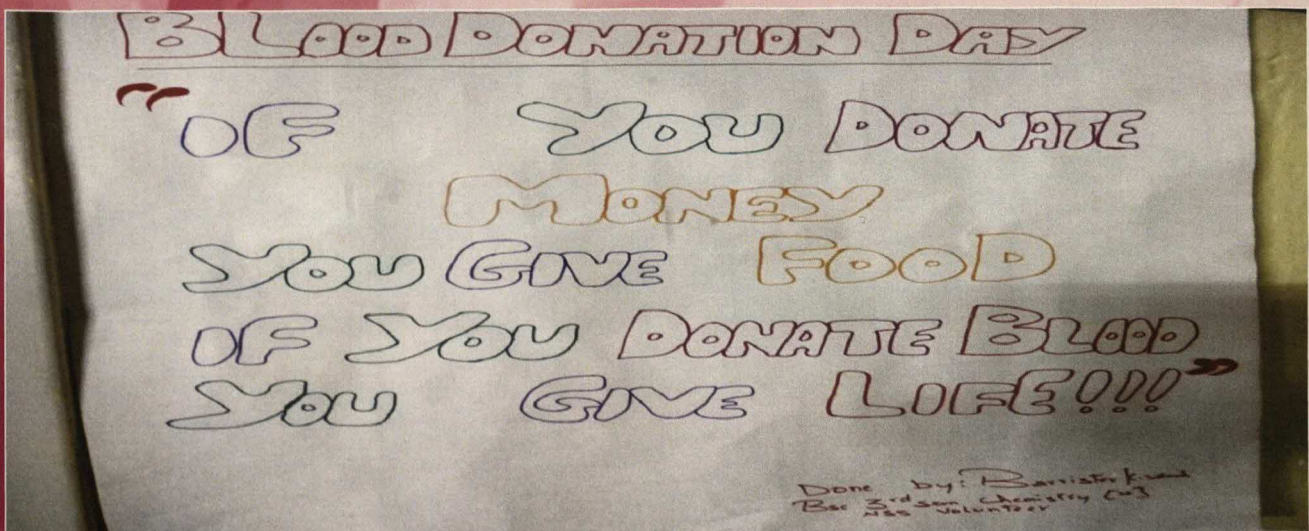 BLOOD DONATION DAY
“IF YOU DONATE
MONEY
YOU GIVE FOOD
IF YOU DONATE BLOOD
YOU GIVE LIFE!!!”
Done by: Barrister
Bsc 3rd Sem Chemistry
NSS Volunteer